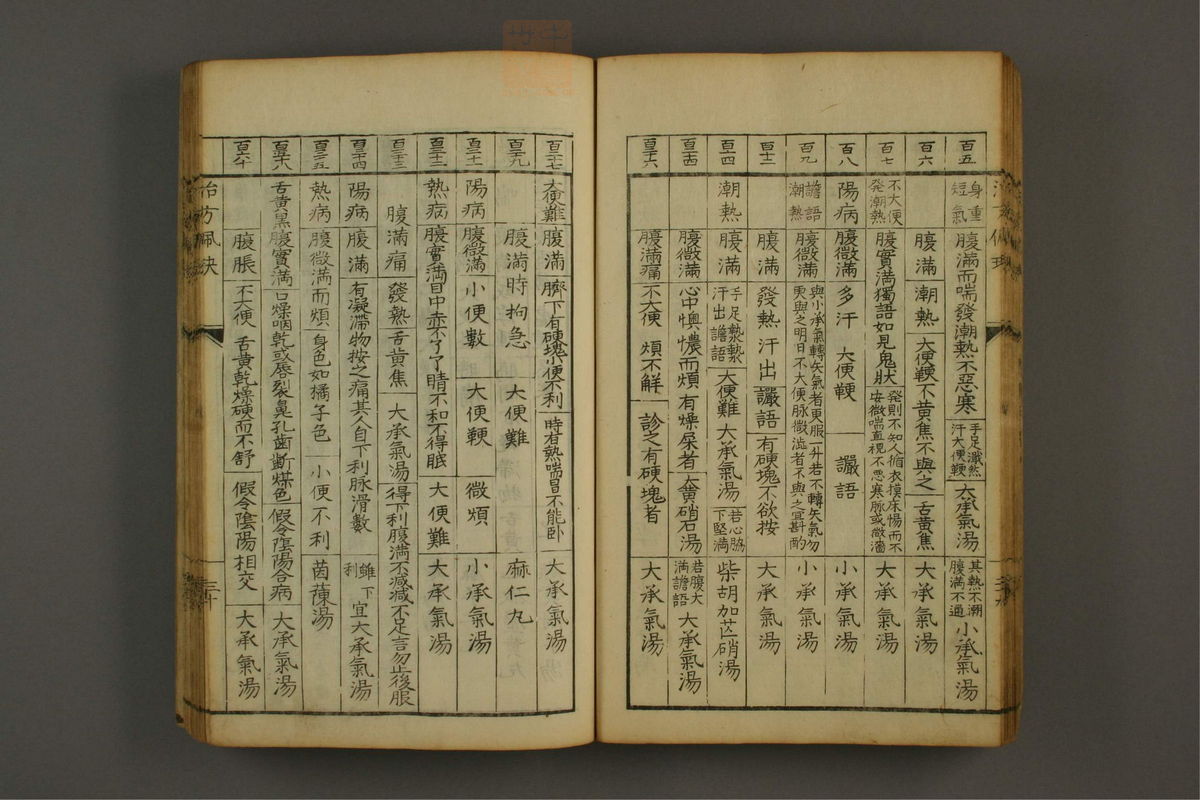 百五 身重短氣 腹滿而喘發潮熱不惡寒 手足濈然汗大便鞕 大承氣湯 其熱不潮腹滿不通 小承氣湯
百六 腹滿 潮熱 大便鞕不黃焦不與之 舌黃焦 大承氣湯
百七 不大便発潮熱 腹實滿獨語如見鬼狀 発則不知人循衣摸床惕而不安微喘直視不惡寒脉或微濇 大承氣湯
百八 陽病 腹微滿 多汗 大便鞕 讝語 小承氣湯
百九 譫語潮熱 腹微滿 與小承氣轉矢氣者更服一升若不轉矢氣勿更與之明日不大便脉微澁者不與之宜斟酌 小承氣湯
腹滿 發熱 汗出 讝語 有硬塊不欲按 大承氣湯
潮熱 腹滿 手足漐漐汗出譫語 大便難 大承氣湯 若心脇下堅滿 柴胡加芒硝湯
腹微滿 心中懊憹而煩 有燥屎者 大黃硝石湯 若腹大滿譫語 大承氣湯
腹滿痛 不大便 煩不解 診之有硬塊者 大承氣湯
大便難 腹滿 臍下有硬塊小便不利 時有熱喘冒不能卧 大承氣湯
腹滿時拘急 大便難 麻仁丸
陽病 腹微滿 小便數 大便鞕 微煩 小承氣湯
熱病 腹實滿 目中亦不了了睛不和不得眠 大便難 大承氣湯
腹滿痛 發熱 舌黃焦 大承氣湯 得下利腹滿不減減不足言勿止後服
陽病 腹滿 有凝滯物按之痛其人自下利脉滑數 雖下利 宜大承氣湯
熱病 腹微滿而煩 身色如橘子色 小便不利 茵蔯湯
舌黃黒 腹實滿 口燥咽乾或唇裂鼻孔齒齗煤色 假令陰陽合病 大承氣湯
腹脹 不大便 舌黃乾燥硬而不舒 假令陰陽相交 大承氣湯
治方佩訣